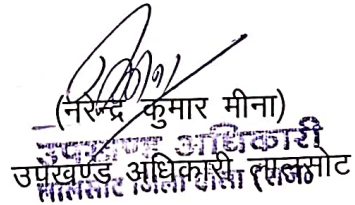 (नरेन्द्र कुमार मीना)
उपखण्ड अधिकारी
उपखण्ड अधिकारी लालसोट
लालसोट जिला दौसा (राज॰)